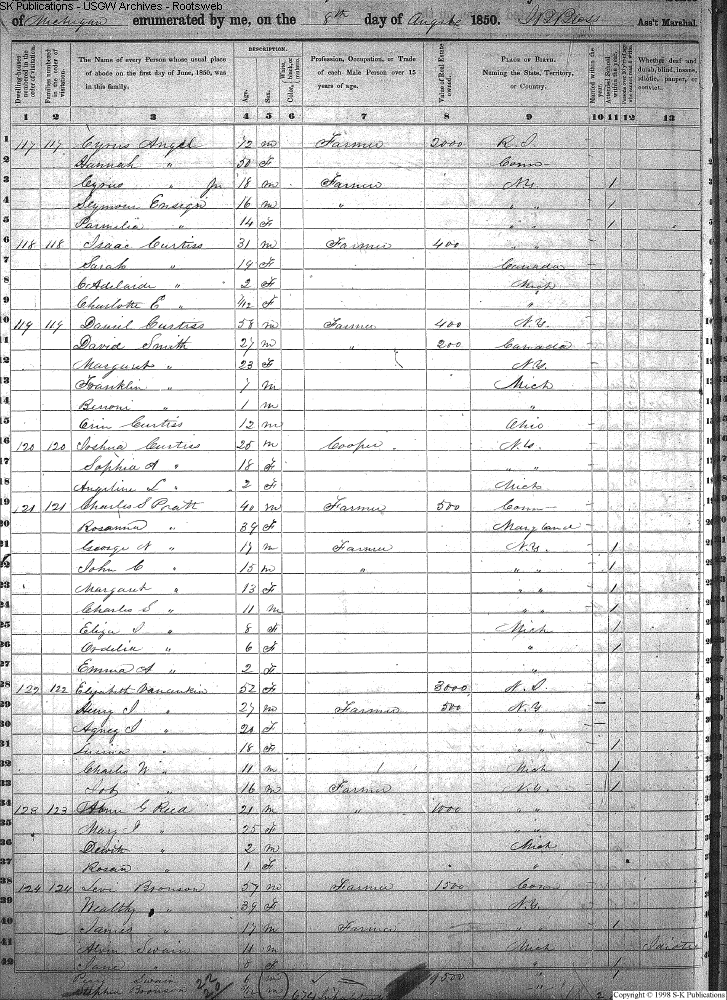 SK Publications - USGW Archives - Rootsweb
of Michigan enumerated by me, on the 8th day of August 1850. Ass't Marshal.
DESCRIPTION.
Dwelling-houses numbered in the order of visitation. Families numbered in the order of visitation. The Name of every Person whose usual place of abode on the first day of June, 1850, was in this family. Age. Sex. Profession, Occupation, or Trade of each Male Person over 15 years of age. Value of Real Estate owned. PLACE OF BIRTH. Naming the State, Territory, or Country. Married within the year. Attended School within the year. Whether deaf and dumb, blind, insane, idiotic, pauper, or convict.
1 2 3 4 5 6 7 8 9 10 11 12 13
1 117 117 Cyrus Angel 72 m Farmer 2000 R.I
2 Hannah " 50 F Conn
3 Cyrus " Jr 18 m Farmer N.Y. 1
4 Seymour Ensign 16 m " " " 1
5 Parmelia " 14 F " " 1
6 118 118 Isaac Curtiss 31 m Farmer 400 " "
7 Sarah " 19 F Canada
8 C Adelaide " 2 F Mich
9 Charlotte E " F "
10 119 119 Daniel Curtiss 58 m Farmer 400 N.Y.
11 David Smith 27 m " 200 Canada
12 Margaret " 23 F N.Y.
13 Franklin " 7 m Mich
14 Benoni " 1 m "
15 Erin Curtiss 12 m Ohio
16 120 120 Joshua Curtiss 25 m Cooper N.Y.
17 Sophia A " 18 F " "
18 Angeline L " 2 F Mich
19 121 121 Charles S Pratt 40 m Farmer 500 Conn
20 Rosanna " 39 F Maryland
21 George N " 17 m Farmer N.Y. 1
22 John C " 15 m " " " 1
23 Margaret " 13 F " " 1
24 Charles S " 11 m " " 1
25 Eliza J " 8 F Mich 1
26 Cordelia " 6 F " 1
27 Emma A " 2 F "
28 122 122 Elizabeth 52 F 3000 N.J.
29 Henry J " 27 m Farmer 500 N.Y.
30 Agnes J " F " "
31 " 18 F " " 1
32 Charles W " 11 m Mich 1
33 " 16 m Farmer N.Y. 1
34 123 123 G Reed 21 m " 1000 " "
35 Mary J " 25 F " "
36 Dewitt " 2 m Mich
37 Rosan " 1 F "
38 124 124 Levi Bronson 57 m Farmer 1500 Conn
39 Wealthy " 39 F N.Y.
40 James " 17 m Farmer " 1
41 Swain 11 m Mich Idiotic
42 Jane " 8 F " 1
Swain
Bronson 4500
Copyright © 1998 S-K Publications